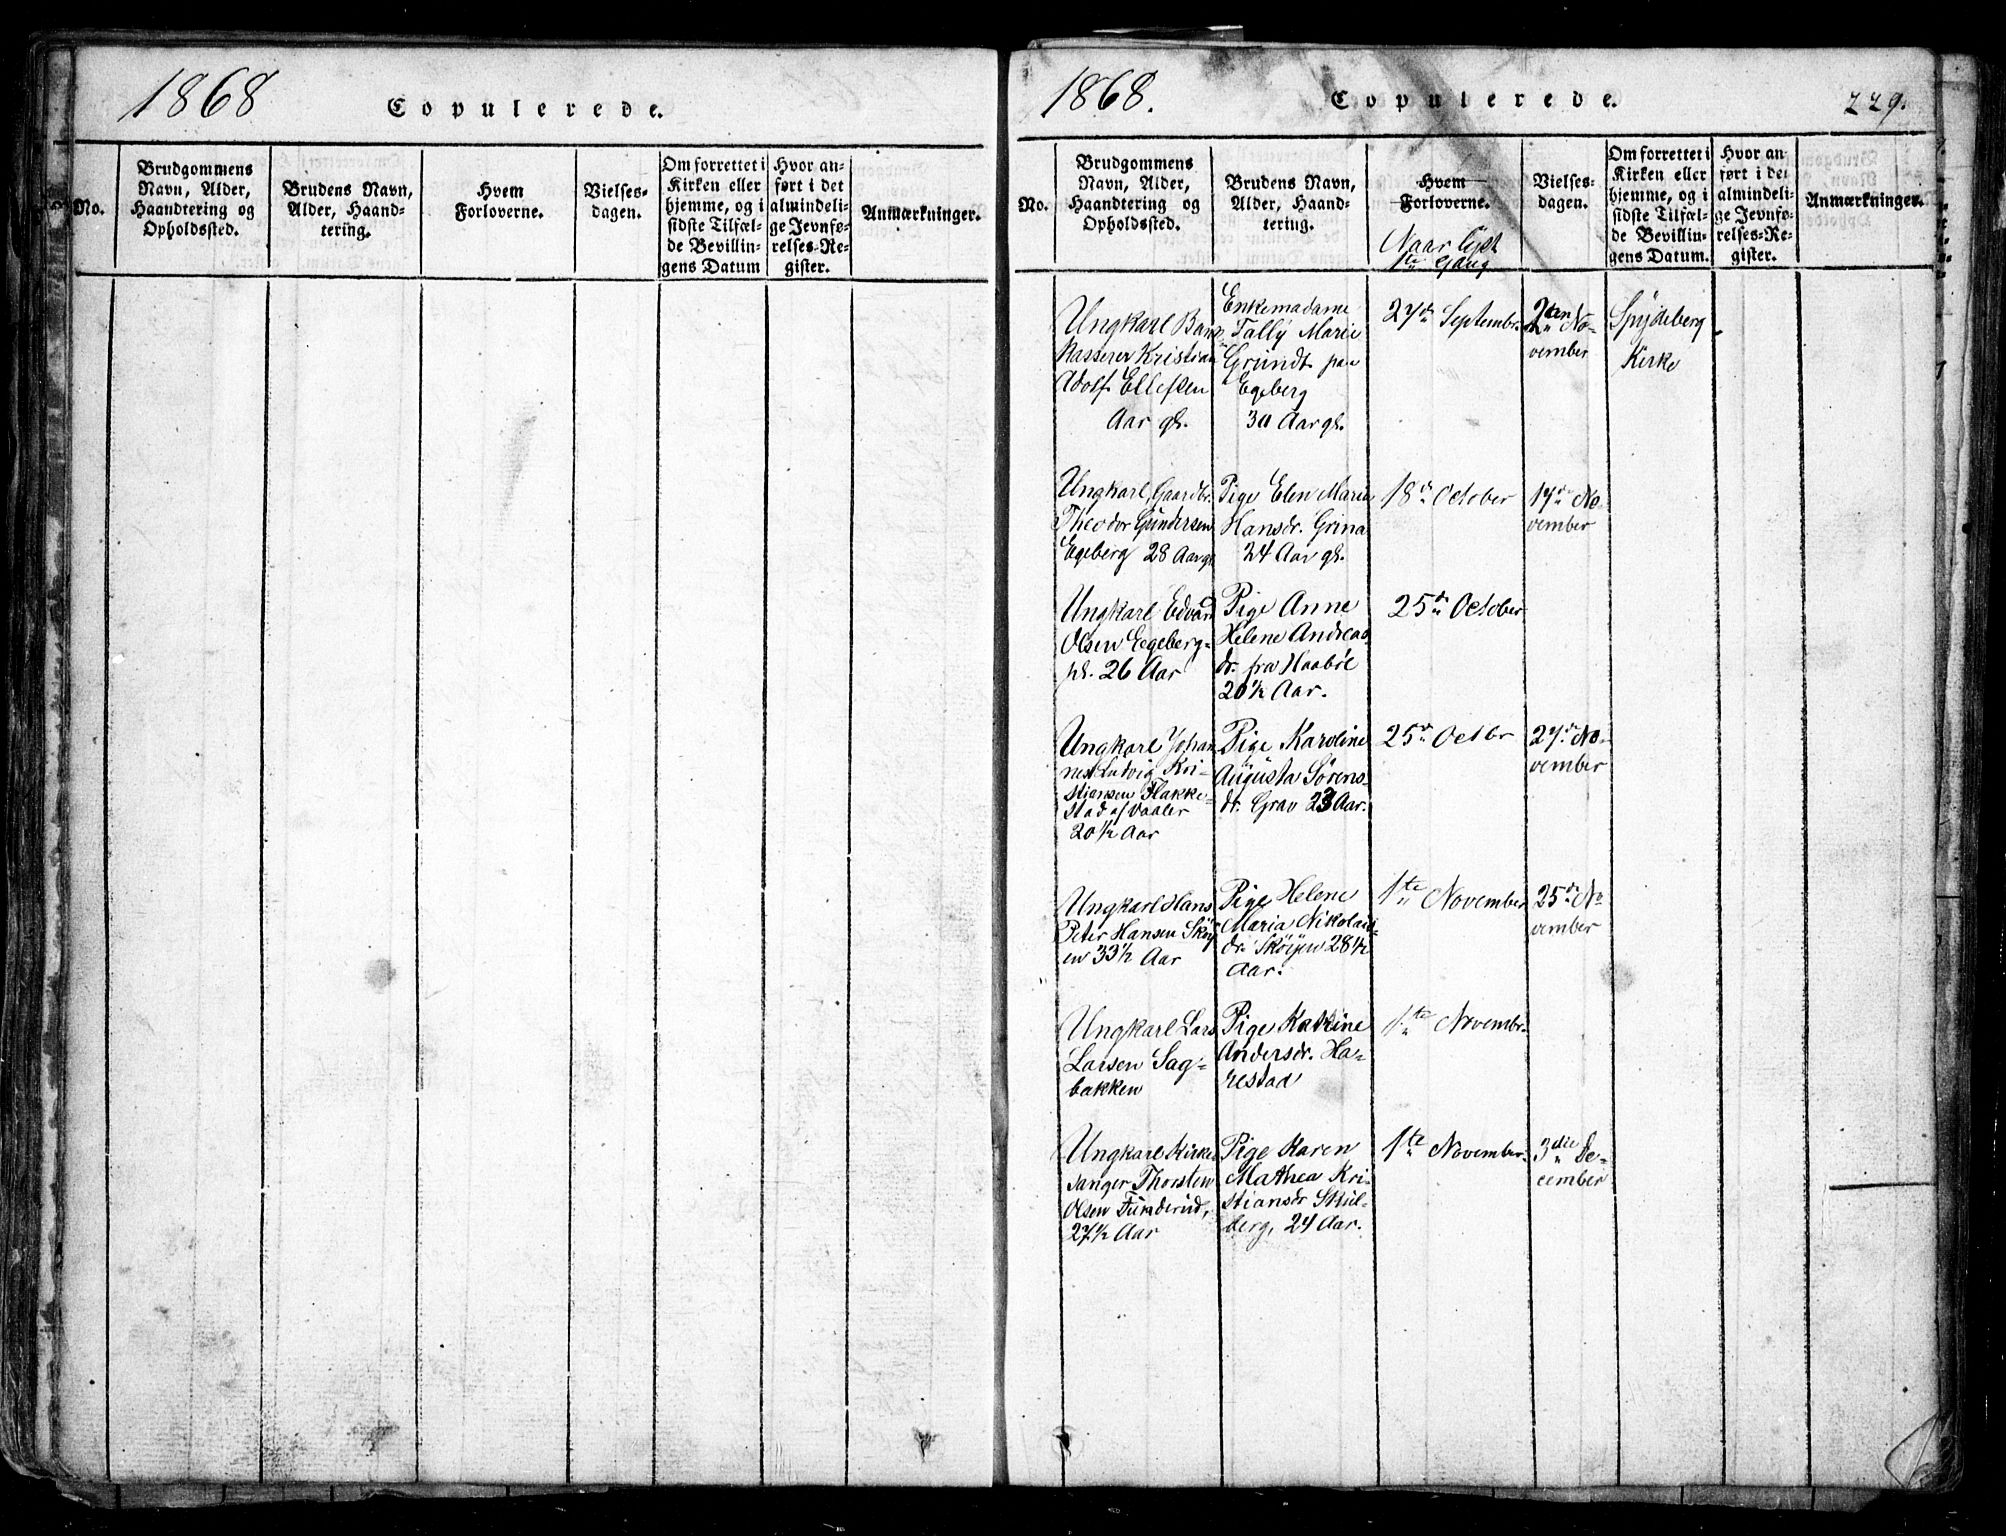 1868
Copulerede.
No.
Brudgommens
Navn, Alder,
Haandtering og
Opholdssted.
Brudens Navn,
Alder, Haand-
tering.
Hvem
Forloverne.
Vielses-
dagen.
Om forrettet i
Kirken eller
hjemme, og i
sidste Tilfæl-
de Bevillin-
gens Datum
Hvor an-
ført i det
almindeli-
ge Jevnfø-
relses-Re-
gister.
Anmærkninger.
1868.
Copulerede.
229.
No.
Brudgommens
Navn, Alder,
Haandtering og
Opholdssted.
Brudens Navn,
Alder, Haand-
tering.
Hvem
Forloverne.
Naar lyst
1te Gang
Vielses-
dagen.
Om forrettet i
Kirken eller
hjemme, og i
sidste Tilfæl-
de Bevillin-
gens Datum.
Hvor an-
ført i det
almindeli-
ge Jevnfø-
relses-Re-
gister.
Anmærkninger.
Ungkarl Bank-
kasserer Kristian
Adolf Ellefsen
Aar gl.
Enkemadame
Tally Marie
Grundt paa
Egeberg
30 Aar gl.
27de Septembr.
2den No-
vember
Spydeberg
Kirke
Ungkarl, Gaardbr.
Theodor Gundersen
Egeberg 28 Aar gl.
Pige Elen Maria
Hansdr. Grina
24 Aar gl.
18de October
17de No-
vember
Ungkarl Edvard
Olsen Egeberg-
pl. 26 Aar
Pige Anne
Helene Andreas
dr. fra Haabøl
20½ Aar.
25de October
Ungkarl Johan
nes Ludvig Kri-
stiansen Flakke-
stad af Vaaler
20½ Aar
Pige Karoline
Augusta Sørens-
dr. Grav 23 Aar.
25de Octbr
27de No-
vember
Ungkarl Hans
Peter Hansen Skøy
en 33½ Aar
Pige Helene
Maria Nikolais-
dr. Skøijen 28½
Aar.
1te November
25de No
vember
Ungkarl Lars
Larsen Sag-
bakken
Pige Katrine
Andersdr. Ha-
restad
1te Novembr.
Ungkarl Kirke
sanger Thorsten
Olsen Funderud,
27½ Aar
Pige Karen
Mathea Kri-
stiansdr Skul-
berg, 24 Aar.
1te November.
3die De-
cember